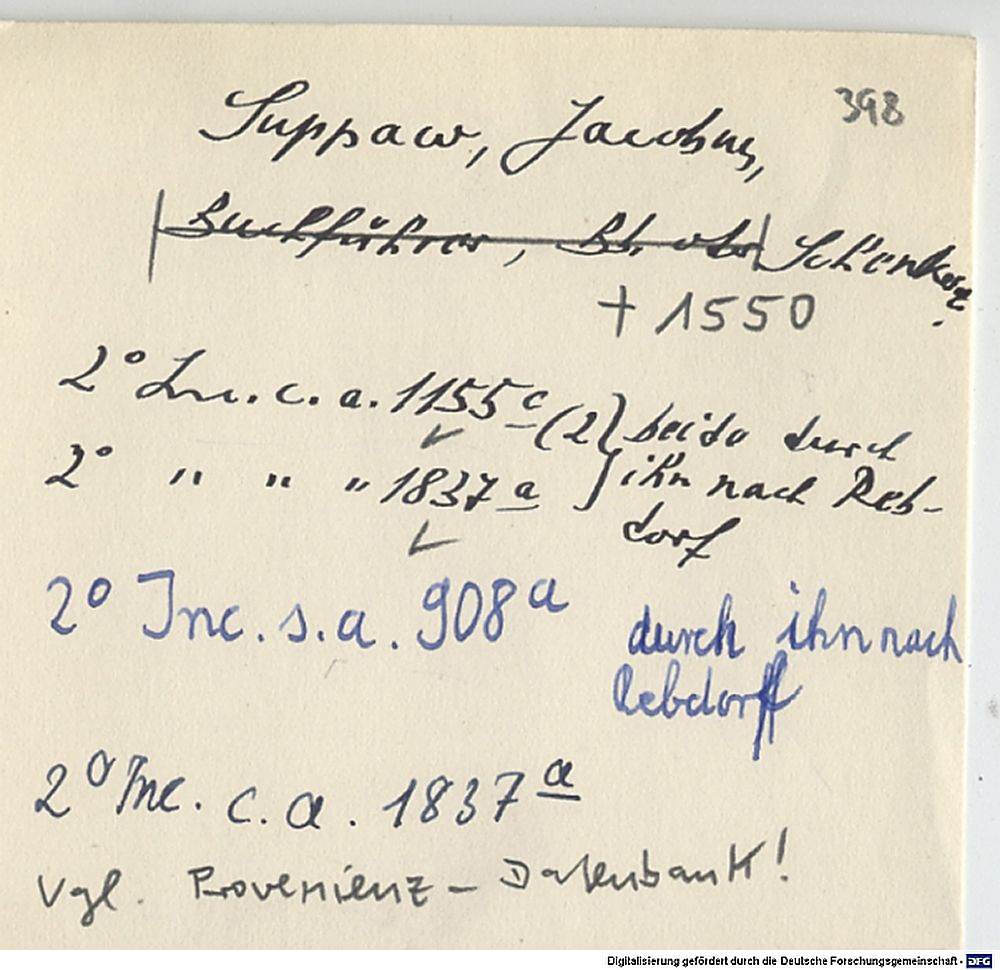 398
Suppaw, Jacobus,
Buchführer, Br. oder Schenker.
+ 1550
2° Inc. c. a. 1155 c (2) } beide durch
2° " " " 1837 a } ihn nach Reb-
dorf
2° Inc. s. a. 908 a durch ihn nach
Rebdorff
2° Inc. c. a. 1837 a
Vgl. Provenienz-Datenbank!
Digitalisierung gefördert durch die Deutsche Forschungsgemeinschaft - DFG